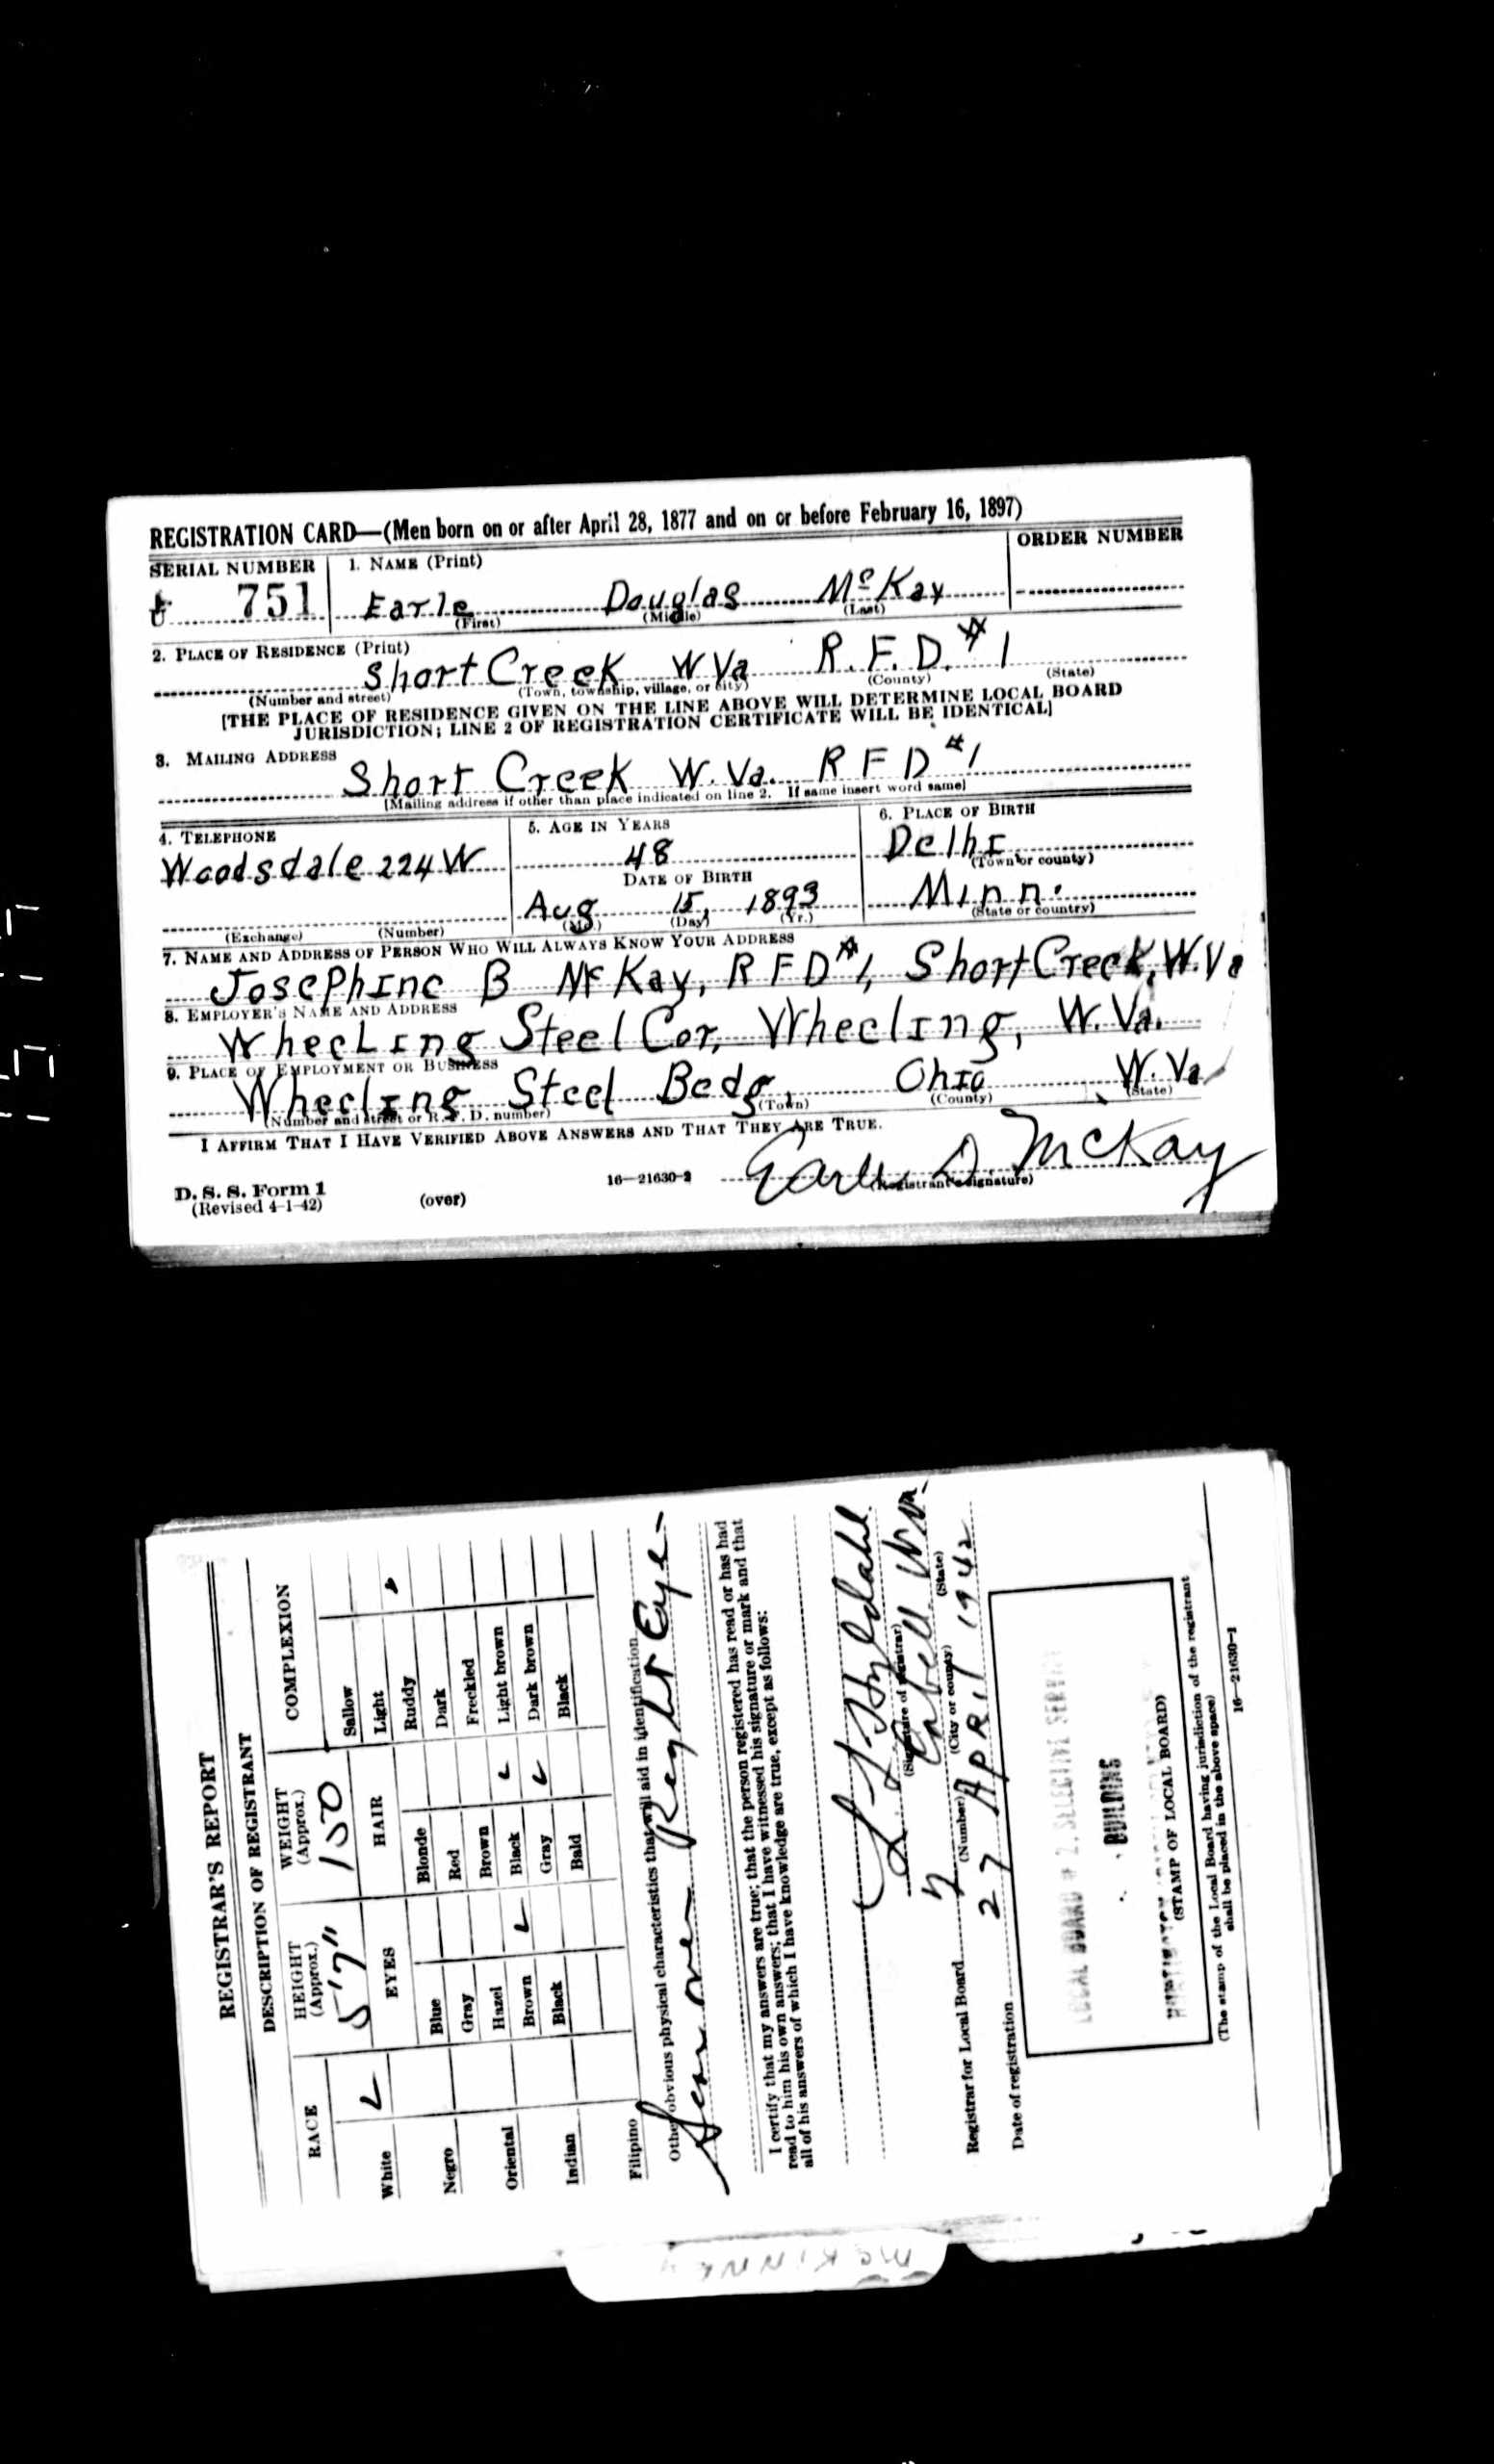 REGISTRATION CARD—(Men born on or after April 28, 1877 and on or before February 16, 1897)
SERIAL NUMBER 1. NAME (Print) ORDER NUMBER
U 751 Earle Douglas McKay
(First) (Middle) (Last)
2. PLACE OF RESIDENCE (Print)
Short Creek W Va R.F.D. #1
(Number and street) (Town, township, village, or city) (County) (State)
[THE PLACE OF RESIDENCE GIVEN ON THE LINE ABOVE WILL DETERMINE LOCAL BOARD
JURISDICTION; LINE 2 OF REGISTRATION CERTIFICATE WILL BE IDENTICAL]
3. MAILING ADDRESS
Short Creek W. Va. R F D #1
[Mailing address if other than place indicated on line 2. If same insert word same]
4. TELEPHONE 5. AGE IN YEARS 6. PLACE OF BIRTH
Woodsdale 224 W 48 Delhi
(Town or county)
DATE OF BIRTH
Aug 15, 1893 Minn.
(Exchange) (Number) (Mo.) (Day) (Yr.) (State or country)
7. NAME AND ADDRESS OF PERSON WHO WILL ALWAYS KNOW YOUR ADDRESS
Josephine B McKay, R F D #1, Short Creek, W. Va
8. EMPLOYER'S NAME AND ADDRESS
Wheeling Steel Cor. Wheeling, W. Va.
9. PLACE OF EMPLOYMENT OR BUSINESS
Wheeling Steel Bedg, Ohio W. Va
(Number and street or R. F. D. number) (Town) (County) (State)
I AFFIRM THAT I HAVE VERIFIED ABOVE ANSWERS AND THAT THEY ARE TRUE.
Earle D. McKay
D. S. S. Form 1 16—21630-2 (Registrant's signature)
(Revised 4-1-42) (over)
REGISTRAR'S REPORT
DESCRIPTION OF REGISTRANT
RACE HEIGHT (Approx.) WEIGHT (Approx.) COMPLEXION
5'7" 150
EYES HAIR
White Blue Blonde Sallow
Negro Gray Red Light
Oriental Hazel Brown Ruddy
Indian Brown Black Dark
Filipino Black Gray Freckled
Bald Light brown
Dark brown
Black
Other obvious physical characteristics that will aid in identification
Scar over Right Eye-
I certify that my answers are true; that the person registered has read or has had
read to him his own answers; that I have witnessed his signature or mark and that
all of his answers of which I have knowledge are true, except as follows:
(Signature of registrar)
Registrar for Local Board 2 Cabell W Va
(Number) (City or county) (State)
Date of registration 27 April 1942
LOCAL BOARD # 2, SELECTIVE SERVICE
BUILDING
HUNTINGTON
(STAMP OF LOCAL BOARD)
(The stamp of the Local Board having jurisdiction of the registrant
shall be placed in the above space)
16—21630-1
MCKINNEY